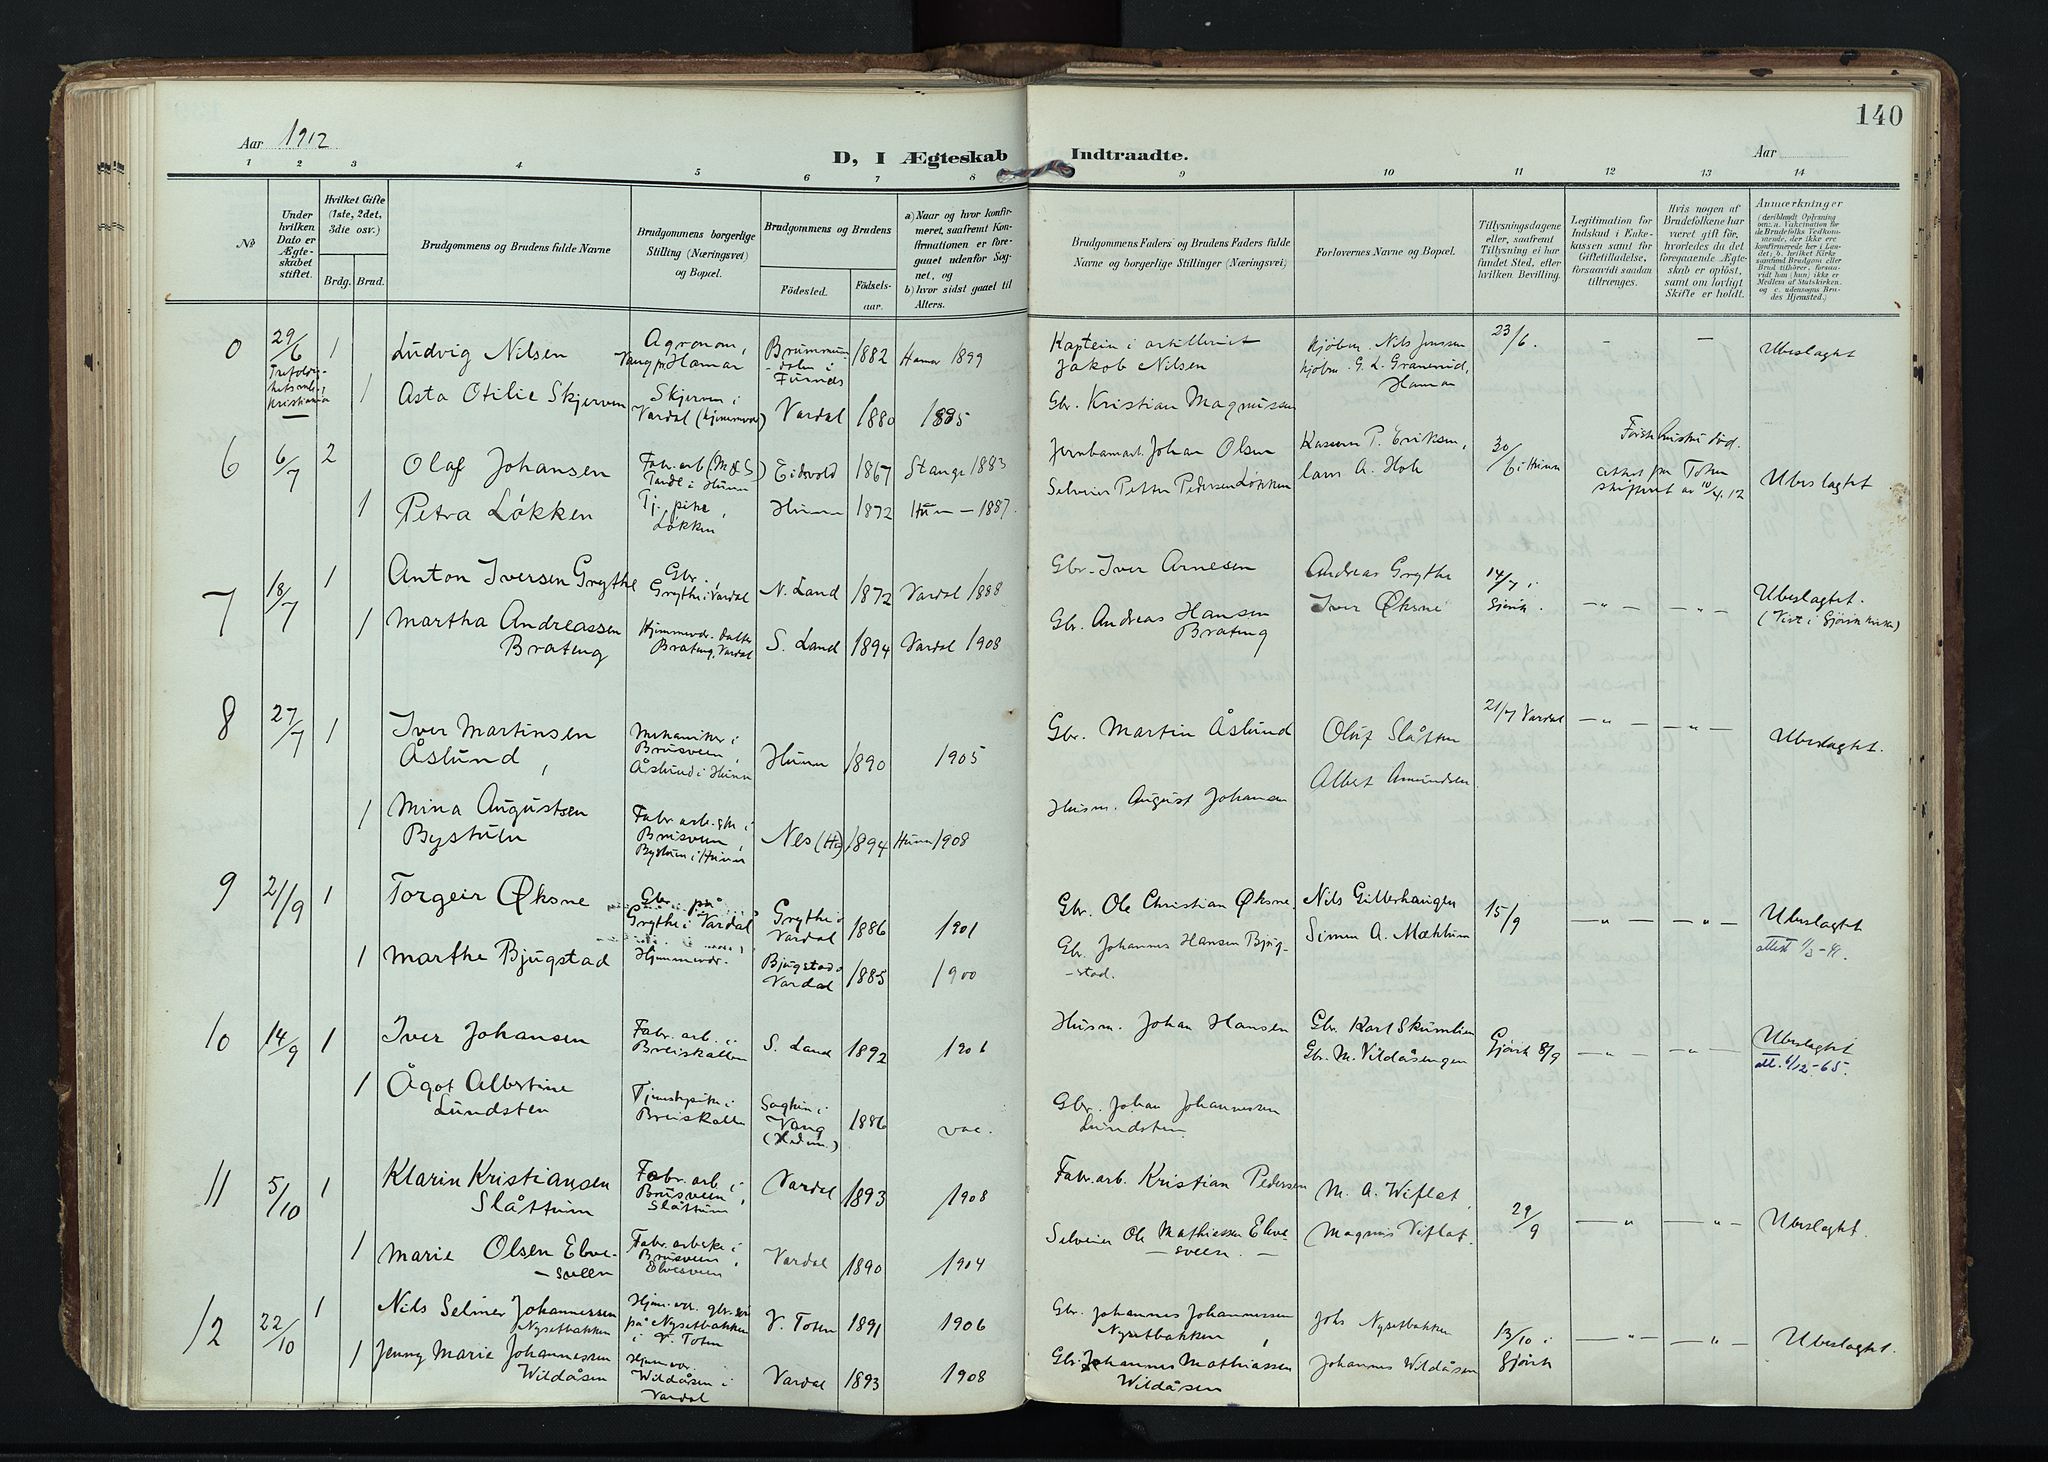 140
Aar 1912
D, I Ægteskab Indtraadte.
Aar
1 2 3 4 5 6 7 8 9 10 11 12 13 14
№
Under hvilken Dato er Ægteskabet stiftet.
Hvilket Gifte (1ste, 2det, 3die osv.)
Brdg. Brud.
Brudgommens og Brudens fulde Navne
Brudgommens borgerlige Stilling (Næringsvei) og Bopæl.
Brudgommens og Brudens
Fødested.
Fødselsaar.
a) Naar og hvor konfirmeret, saafremt Konfirmationen er foregaaet udenfor Sognet, og
b) hvor sidst gaaet til Alters.
Brudgommens Faders og Brudens Faders fulde Navne og borgerlige Stillinger (Næringsvei)
Forlovernes Navne og Bopæl.
Tillysningsdagene eller, saafremt Tillysning ei har fundet Sted, efter hvilken Bevilling.
Legitimation for Indskud i Enkekassen samt for Giftetilladelse, forsaavidt saadan tiltrænges.
Hvis nogen af Brudefolkene har været gift før, hvorledes da det foregaaende Ægteskab er opløst, samt om lovligt Skifte er holdt.
Anmærkninger
0 29/6 Trefoldighetsmh. i Kristiania 1 Ludvig Nilsen Agronom, Vang pr Hamar Brummunddalen i Furnes 1882 Hamar 1899 Kaptein i artilleriet Jakob Nilsen kjøbm. Nils Jenssen kjøbm. G. L. Granerud, Hamar 23/6. - - Ubeslagtet
1 Asta Otilie Skjerven Skjerven i Vardal (hjemmevær) Vardal 1880 1895 Gbr. Kristian Magnussen
6 6/7 2 Olaf Johansen Fabr.arb (M & S) i Hunn Eidsvold 1867 Stange 1883 Jernbanearb. Johan Olsen Lars A. Hol 30/6 i Hunn attest fra Toten skifteret av 10/4.12 Ubeslagtet
1 Petra Løkken Tj. pike, Løkken Hunn 1872 Hunn - 1887. Selveier Petter Pedersen Løkken
7 18/7 1 Anton Iversen Grythe Gbr., Grythe i Vardal N. Land 1872 Vardal 1888 Gbr. Iver Arnesen Andreas Grythe Iver Øksne 14/7 i Gjøvik. - " - - " - Ubeslagtet. (Viet i Gjøvik kirke)
1 Martha Andreassen Brateng Hjemmevær. datter Brateng, Vardal S. Land 1894 Vardal 1908 Gbr. Andreas Hansen Brateng
8 27/7 1 Iver Martinsen Åslund, Mekaniker i Brusveen, Åslund i Hunn Hunn 1890 1905 Gbr. Martin Åslund Oluf Slåtten Albert Amundsen 21/7 Vardal - " - - " - Ubeslagtet.
1 Mina Augustsen Bystuen Fabr. arb.ske i Brusveen, Bystuen i Hunn Nes (H.) 1894 Hunn 1908 Husm. August Johansen
9 21/9 1 Torgeir Øksne Gbr. på Grythe i Vardal Grythe Vardal 1886 1901 Gbr. Ole Christian Øksne. Nils Gilberhaugen Simen A. Mæhlum 15/9 - " - - " - Ubeslagtet
1 Marthe Bjugstad Hjemmevær. Bjugstad Vardal 1885 1900 Gbr. Johannes Hansen Bjugstad.
10 14/9 1 Iver Johansen Fabr. arb. i Breiskallen S. Land 1892 1906 Husm. Johan Hansen Gbr. Karl Skumlien Gbr. M. Vildåsengen Gjøvik 8/9 - " - - " - Ubeslagtet att. 6/12-65.
1 Ågot Albertine Lundsten Tjenestepike i Breiskallen Vang (Hedm.) 1886 vac. Gbr. Johan Johannessen Lundsten
11 5/10 1 Klarin Kristiansen Slåttum Fabr. arb i Brusveen, Slåttum Vardal 1893 1908 Fabr.arb. Kristian Pedersen M. A. Wiflat, Magnus Viflat. 29/9 - " - - " - Ubeslagtet.
1 Marie Olsen Elvesveen Fabr. arbske i Brusveen, Elvesveen Vardal 1890 1904 Selveier Ole Mathiessen Elvesveen. -
12 22/10 1 Nils Selmer Johannessen Nysetbakken Hjem.vær. gbr. søn på Nysetbakken i V. Toten V. Toten 1891 1906 Gbr. Johannes Johannessen Nysetbakken, Johs Nysetbakken 13/10 i Gjøvik - " - - " - Ubeslagtet.
1 Jenny Marie Johannessen Wildåsen Hjem.vær. Wildåsen i Vardal Vardal 1893 1908 Gbr. Johannes Mathiassen Wildåsen Johannes Wildåsen